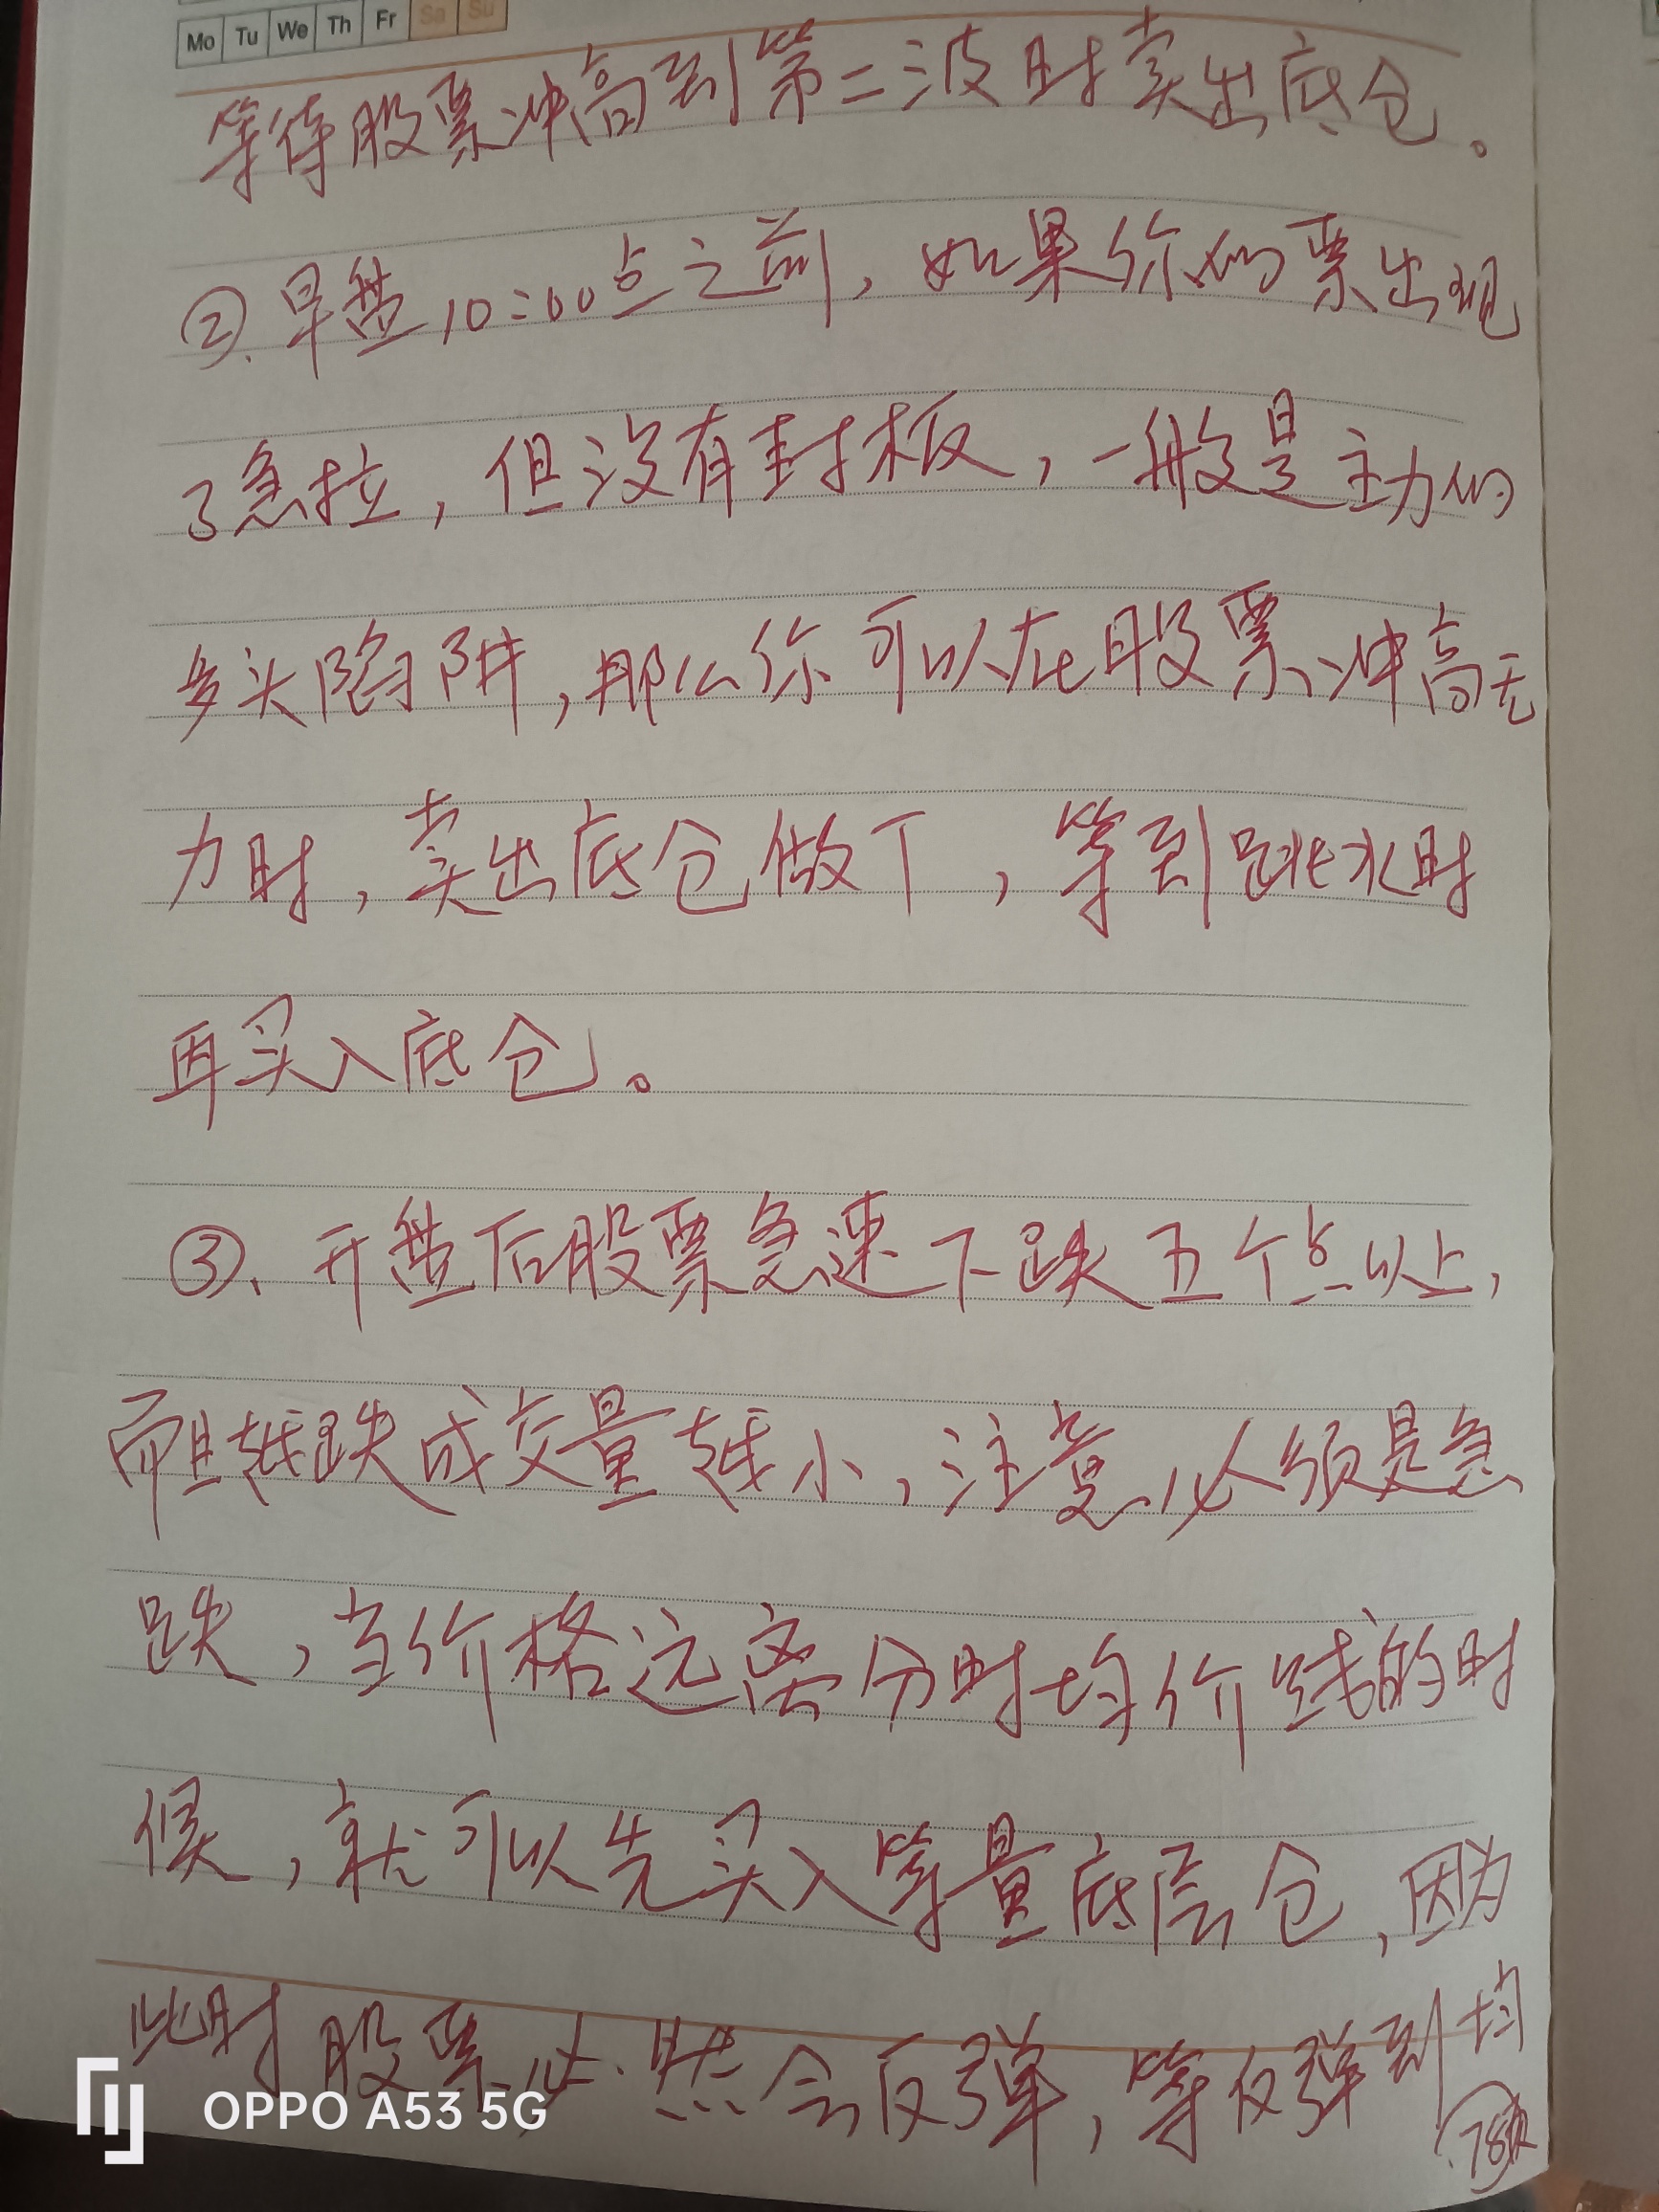 Mo Tu We Th Fr Sa Su
等待股票冲高到第二波时卖出底仓。
②.早盘10:00点之前,如果你的票出现
了急拉,但没有封板,一般是主力的
多头陷阱,那么你可以在股票冲高无
力时,卖出底仓做丁,等到跳水时
再买入底仓。
③、开盘后股票急速下跌五个点以上,
而且越跌成交量越小,注意,必须是急
跌,当价格远离分时均价线的时
候,就可以先买入等量底层仓,因为
此时股票必然会反弹,等反弹到均
OPPO A53 5G